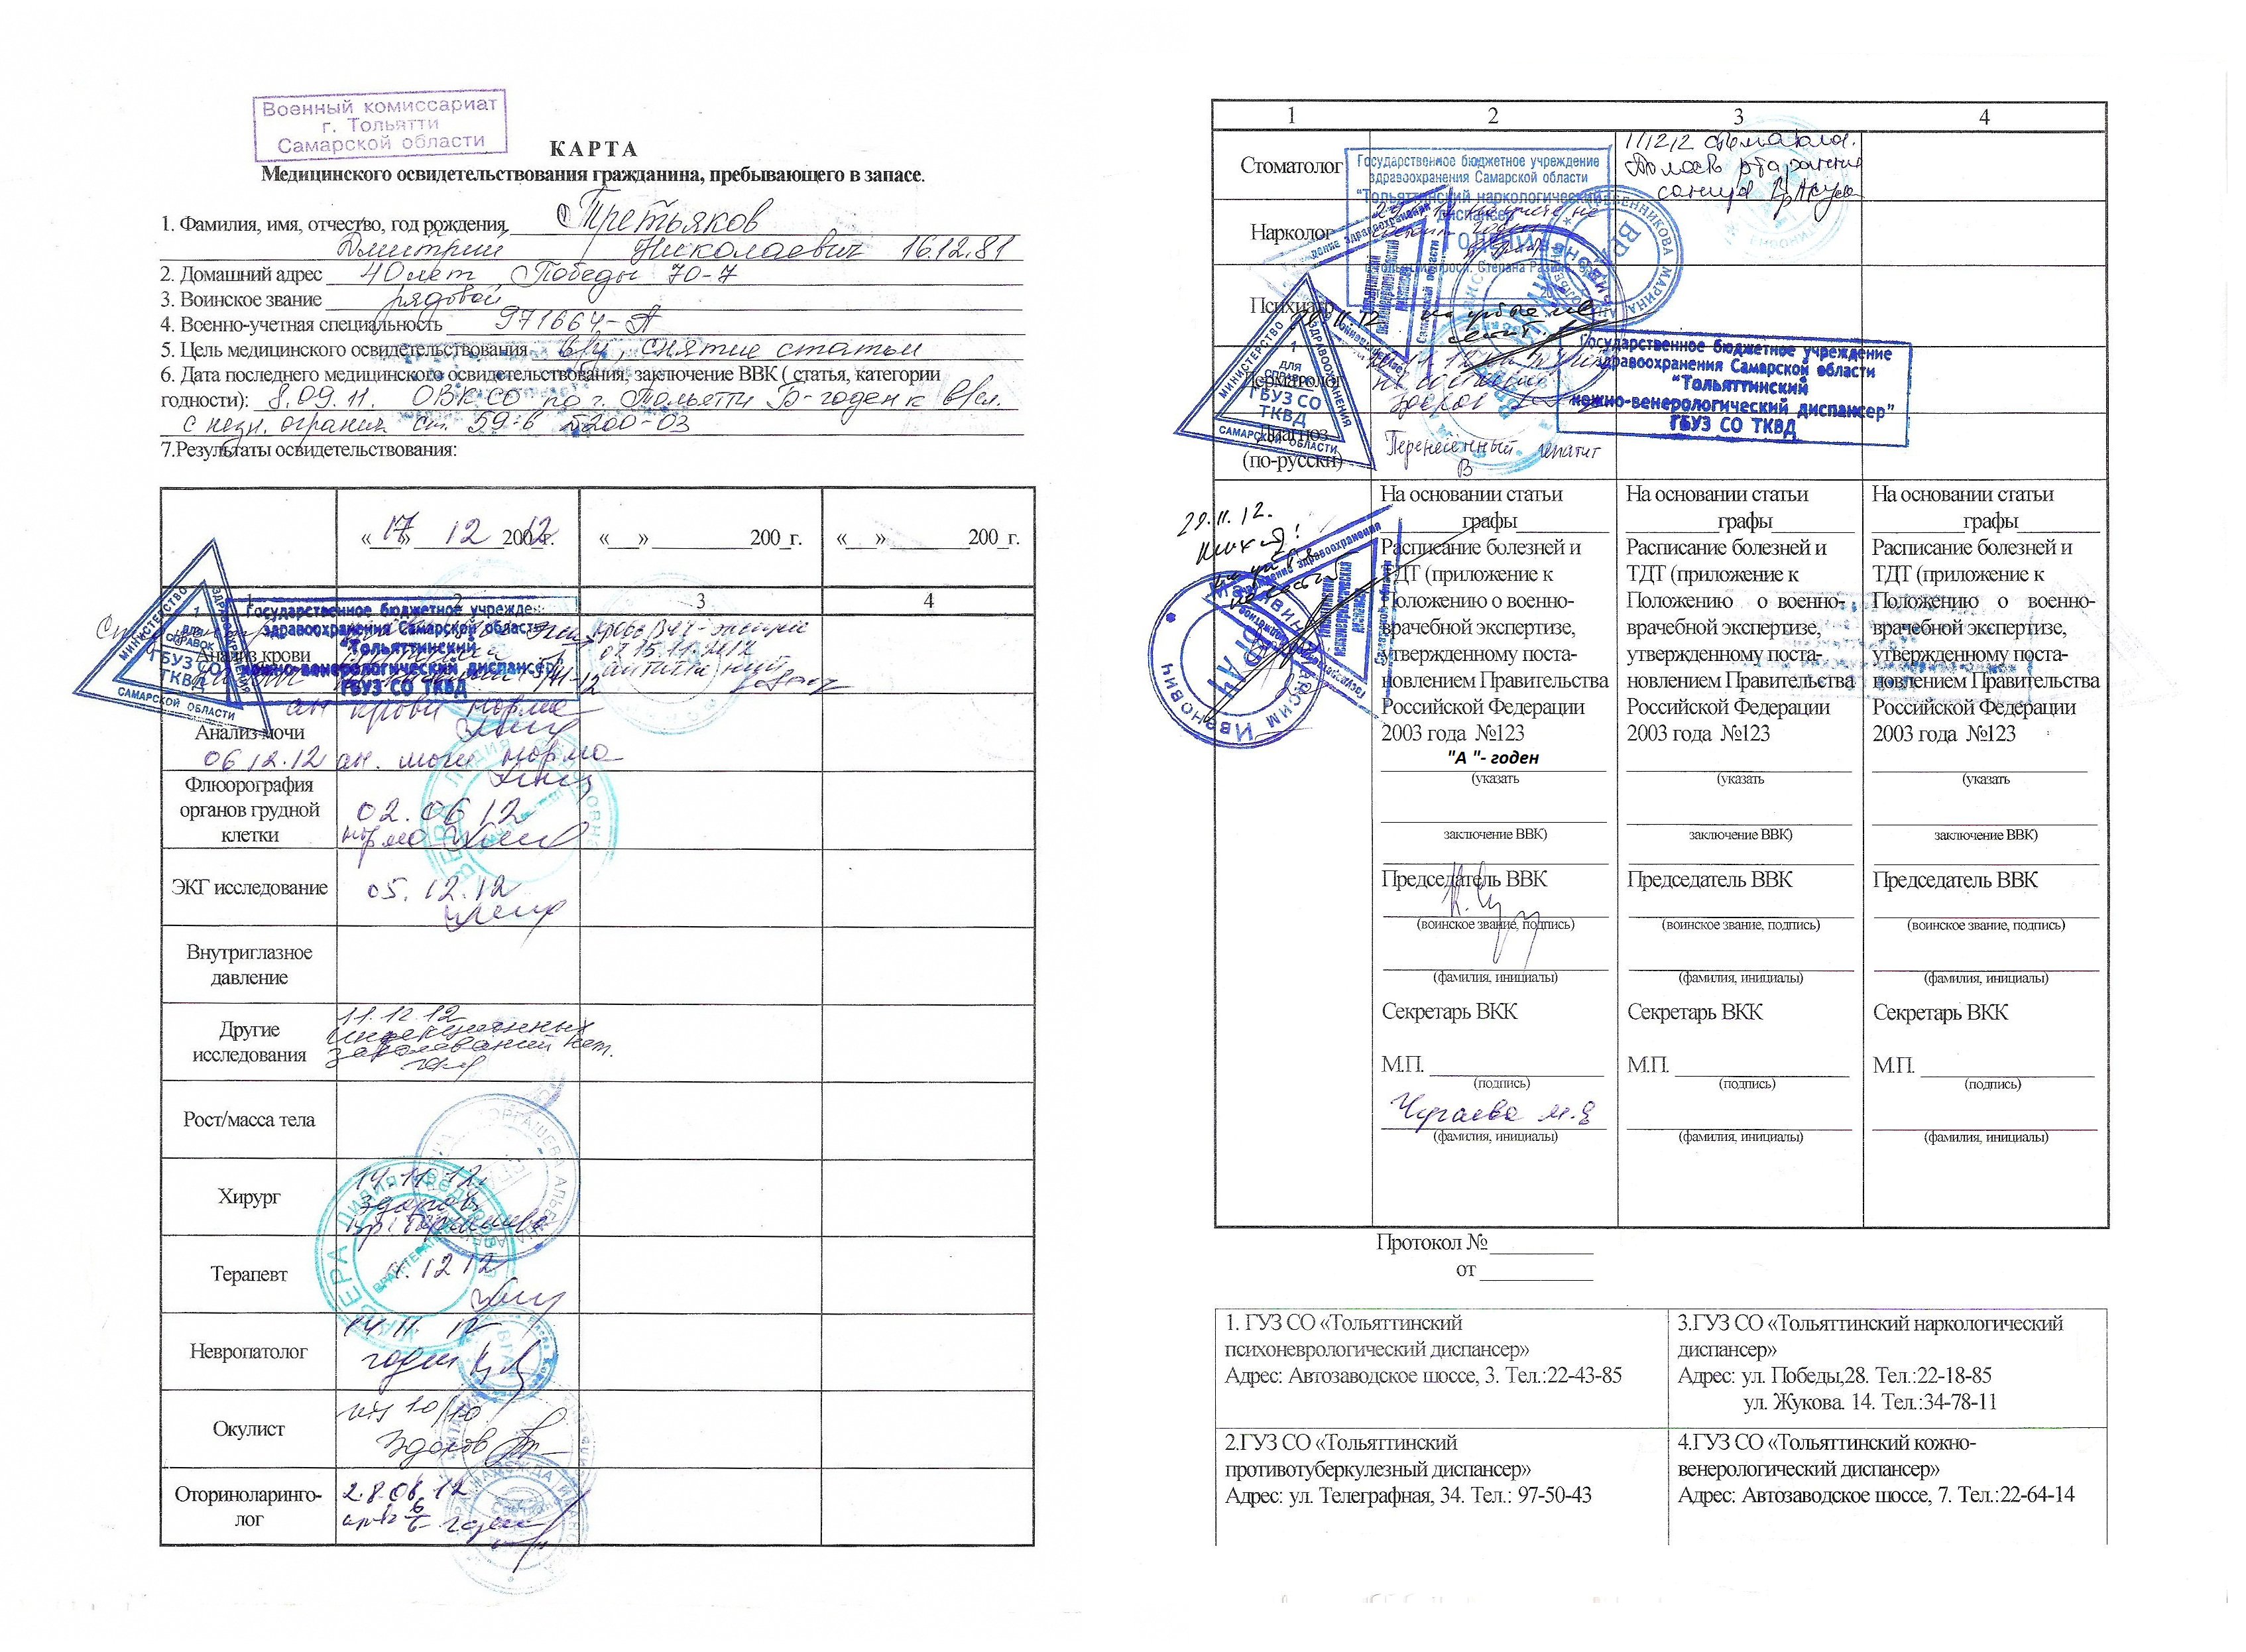 Военный комиссариат
г. Тольятти
Самарской области
КАРТА
Медицинского освидетельствования гражданина, пребывающего в запасе.
1. Фамилия, имя, отчество, год рождения, Третьяков
Дмитрий Николаевич 16.12.81
2. Домашний адрес 40 лет Победы 70-7
3. Воинское звание рядовой
4. Военно-учетная специальность 971664-А
5. Цель медицинского освидетельствования в/у, снятие статьи
6. Дата последнего медицинского освидетельствования, заключение ВВК ( статья, категории
годности): 8.09.11. ОВК СО по г. Тольятти Б-годен к в/сл.
с незн. огранич ст. 59-в Б200-03
7.Результаты освидетельствования:
«17» 12 200 12 г. «___» 200_г. «___» 200_г.
1 2 3 4
МИНИСТЕРСТВО ЗДРАВООХРАНЕНИЯ САМАРСКОЙ ОБЛАСТИ
1 ДЛЯ СПРАВОК ГБУЗ СО ТКВД
Государственное бюджетное учрежден
здравоохранения Самарской области
"Тольяттинский
кожно-венерологический диспансер"
ГБУЗ СО ТКВД
Анализ крови
ан крови норма
Анализ мочи
06 12.12 ан. мочи норма
Флюорография
органов грудной
клетки
02.06 12
норма
ЭКГ исследование
05.12.12
Внутриглазное
давление
Другие
исследования
11.12.12
инфекционных
заболеваний нет.
Рост/масса тела
Хирург
14.11.12.
здоров
Терапевт
11.12 12
Невропатолог
14 11 12
годен
Окулист
10/10
Здоров
Оториноларинго-
лог
28.06.12
годен
1 2 3 4
Стоматолог
111212 стоматолог.
Полость рта
Государственное бюджетное учреждение
здравоохранения Самарской области
"Тольяттинский наркологический
диспансер"
Нарколог
Психиатр
на учёте не
Дерматолог
здоров
МИНИСТЕРСТВО ЗДРАВООХРАНЕНИЯ САМАРСКОЙ ОБЛАСТИ
1 ДЛЯ СПРАВОК ГБУЗ СО ТКВД
Государственное бюджетное учреждение
здравоохранения Самарской области
"Тольяттинский
кожно-венерологический диспансер"
ГБУЗ СО ТКВД
Диагноз
(по-русски)
Перенесённый гепатит
В
29.11.12.
ВРАЧ
Максим Иванович
На основании статьи На основании статьи На основании статьи
графы графы графы
Расписание болезней и Расписание болезней и Расписание болезней и
ТДТ (приложение к ТДТ (приложение к ТДТ (приложение к
Положению о военно- Положению о военно- Положению о военно-
врачебной экспертизе, врачебной экспертизе, врачебной экспертизе,
утвержденному поста- утвержденному поста- утвержденному поста-
новлением Правительства новлением Правительства новлением Правительства
Российской Федерации Российской Федерации Российской Федерации
2003 года №123 2003 года №123 2003 года №123
"А "- годен
(указать (указать (указать
заключение ВВК) заключение ВВК) заключение ВВК)
Председатель ВВК Председатель ВВК Председатель ВВК
(воинское звание, подпись) (воинское звание, подпись) (воинское звание, подпись)
(фамилия, инициалы) (фамилия, инициалы) (фамилия, инициалы)
Секретарь ВКК Секретарь ВКК Секретарь ВКК
М.П. М.П. М.П.
(подпись) (подпись) (подпись)
Чугаева М.Я
(фамилия, инициалы) (фамилия, инициалы) (фамилия, инициалы)
Протокол №
от
1. ГУЗ СО «Тольяттинский
психоневрологический диспансер»
Адрес: Автозаводское шоссе, 3. Тел.:22-43-85
3.ГУЗ СО «Тольяттинский наркологический
диспансер»
Адрес: ул. Победы,28. Тел.:22-18-85
ул. Жукова. 14. Тел.:34-78-11
2.ГУЗ СО «Тольяттинский
противотуберкулезный диспансер»
Адрес: ул. Телеграфная, 34. Тел.: 97-50-43
4.ГУЗ СО «Тольяттинский кожно-
венерологический диспансер»
Адрес: Автозаводское шоссе, 7. Тел.:22-64-14